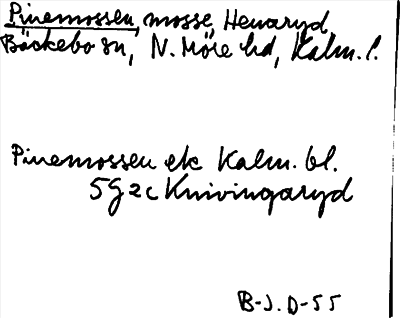 Pinemossen, mosse, Henaryd,
Bäckebo sn, N. Möre hd, Kalm. l.
Pinemossen ek Kalm. bl.
5G 2c Knivingaryd
B-J. D-55